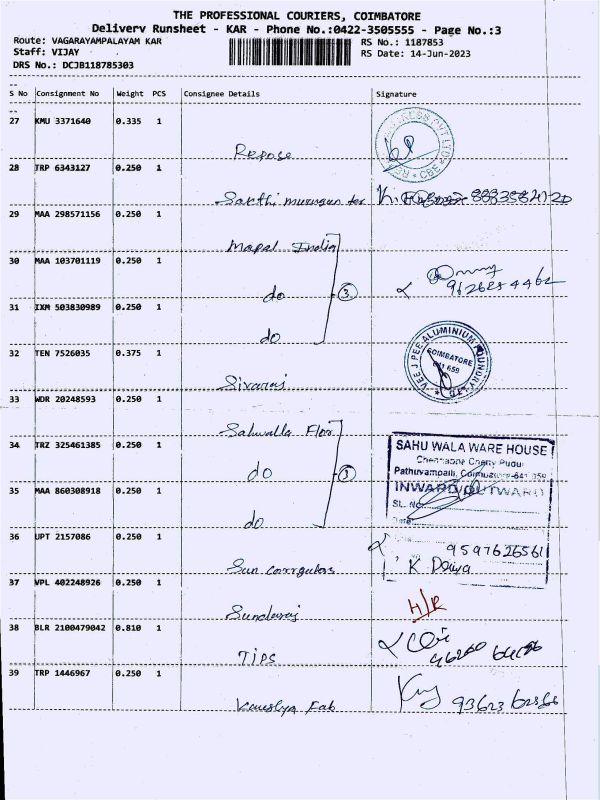 THE PROFESSIONAL COURIERS, COIMBATORE
Delivery Runsheet - KAR - Phone No.:0422-3505555 - Page No.:3
Route: VAGARAYAMPALAYAM KAR
RS No.: 1187853
Staff: VIJAY
RS Date: 14-Jun-2023
DRS No.: DCJB118785303
S No Consignment No Weight PCS Consignee Details Signature
27 KMU 3371640 0.335 1
Repose
28 TRP 6343127 0.250 1
Sakthi murugan tex
29 MAA 298571156 0.250 1
Mapal India
30 MAA 103701119 0.250 1
do 3
31 IXM 503830989 0.250 1
do
32 TEN 7526035 0.375 1
VEE JAY PEE ALUMINIUM FOUNDRY
COIMBATORE
641 659
Sivaraj
33 WDR 20248593 0.250 1
Sahuwalla Flor
34 TRZ 325461385 0.250 1
do 3
SAHU WALA WARE HOUSE
Pathuvampalli, Coimbatore-641 659
INWARD/OUTWARD
SL. No
Date
35 MAA 860308918 0.250 1
do
36 UPT 2157086 0.250 1
9597626561
Sun corrgutors
K Divya
37 VPL 402248926 0.250 1
Sundaraj
H/R
38 BLR 2100479042 0.810 1
TIPS
39 TRP 1446967 0.250 1
Kauslya Fab